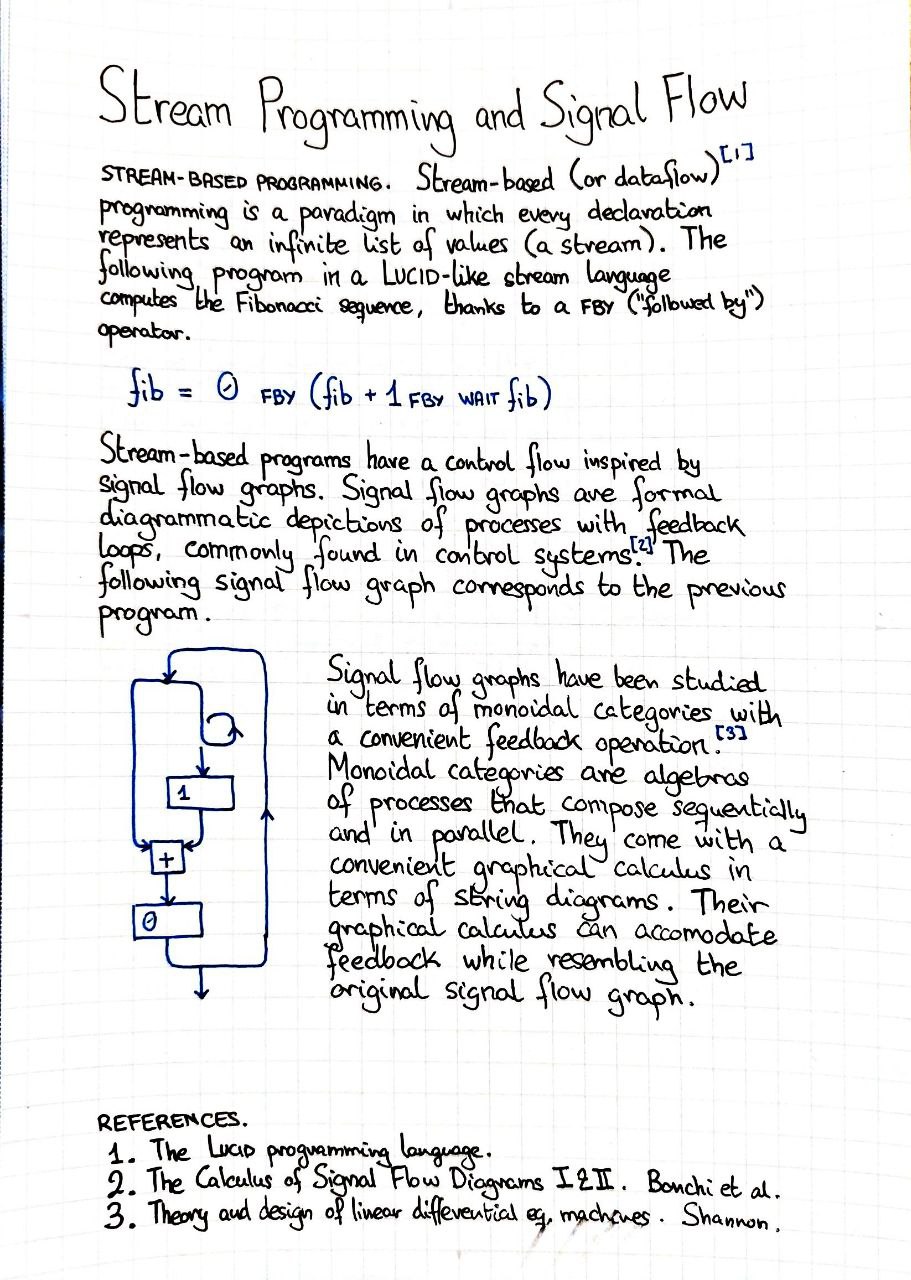 Stream Programming and Signal Flow
STREAM-BASED PROGRAMMING. Stream-based (or dataflow)[1]
programming is a paradigm in which every declaration
represents an infinite list of values (a stream). The
following program in a LUCID-like stream language
computes the Fibonacci sequence, thanks to a FBY ("followed by")
operator.
fib = 0 FBY (fib + 1 FBY WAIT fib)
Stream-based programs have a control flow inspired by
signal flow graphs. Signal flow graphs are formal
diagrammatic depictions of processes with feedback
loops, commonly found in control systems.[2] The
following signal flow graph corresponds to the previous
program.
1
+
0
Signal flow graphs have been studied
in terms of monoidal categories with
a convenient feedback operation.[3]
Monoidal categories are algebras
of processes that compose sequentially
and in parallel. They come with a
convenient graphical calculus in
terms of string diagrams. Their
graphical calculus can accomodate
feedback while resembling the
original signal flow graph.
REFERENCES.
1. The LUCID programming language.
2. The Calculus of Signal Flow Diagrams I & II. Bonchi et al.
3. Theory and design of linear differential eq. machines. Shannon.